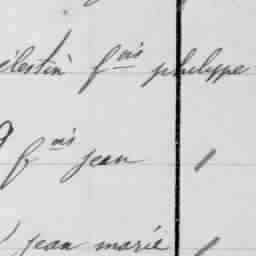 célestin f.ois philippe
f.ois jean
jean marie